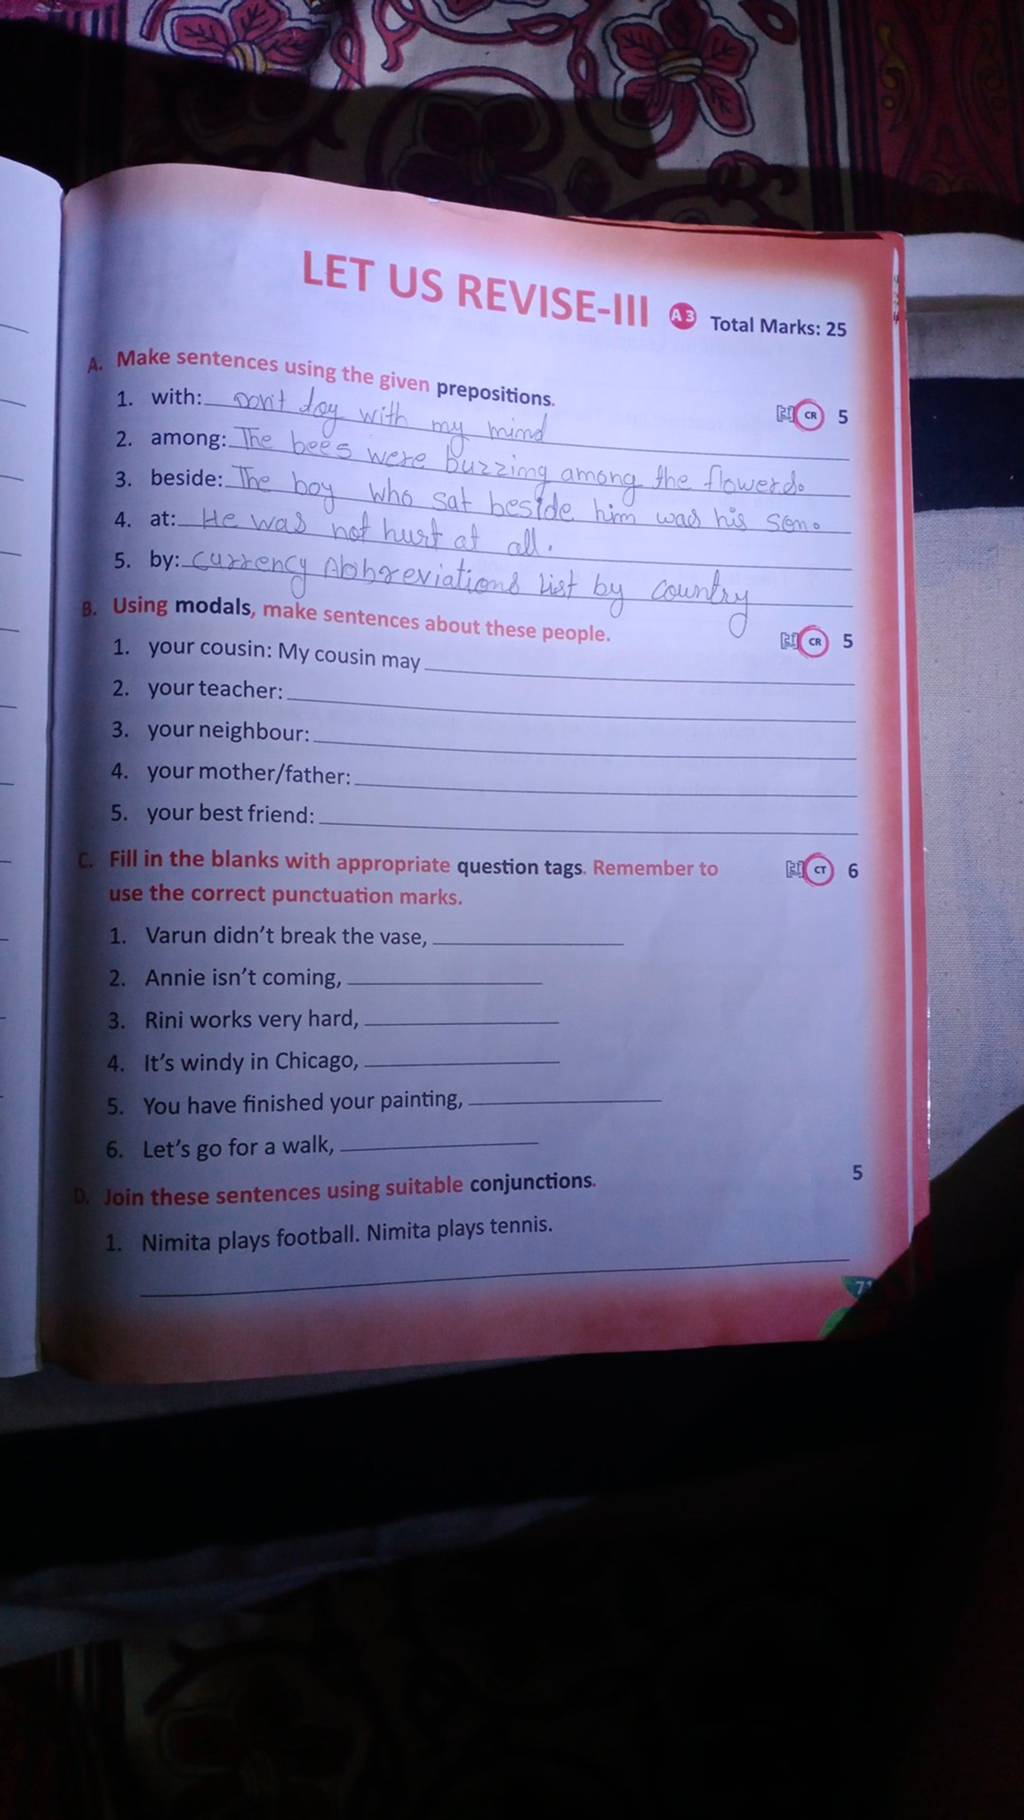 LET US REVISE-III A3 Total Marks: 25
A. Make sentences using the given prepositions. CR 5
1. with: Don't toy with my mind
2. among: The bees were buzzing among the flowers.
3. beside: The boy who sat beside him was his son.
4. at: He was not hurt at all.
5. by: Currency Abbreviations List by country
B. Using modals, make sentences about these people. CR 5
1. your cousin: My cousin may
2. your teacher:
3. your neighbour:
4. your mother/father:
5. your best friend:
C. Fill in the blanks with appropriate question tags. Remember to CT 6
use the correct punctuation marks.
1. Varun didn't break the vase,
2. Annie isn't coming,
3. Rini works very hard,
4. It's windy in Chicago,
5. You have finished your painting,
6. Let's go for a walk,
D. Join these sentences using suitable conjunctions. 5
1. Nimita plays football. Nimita plays tennis.
71